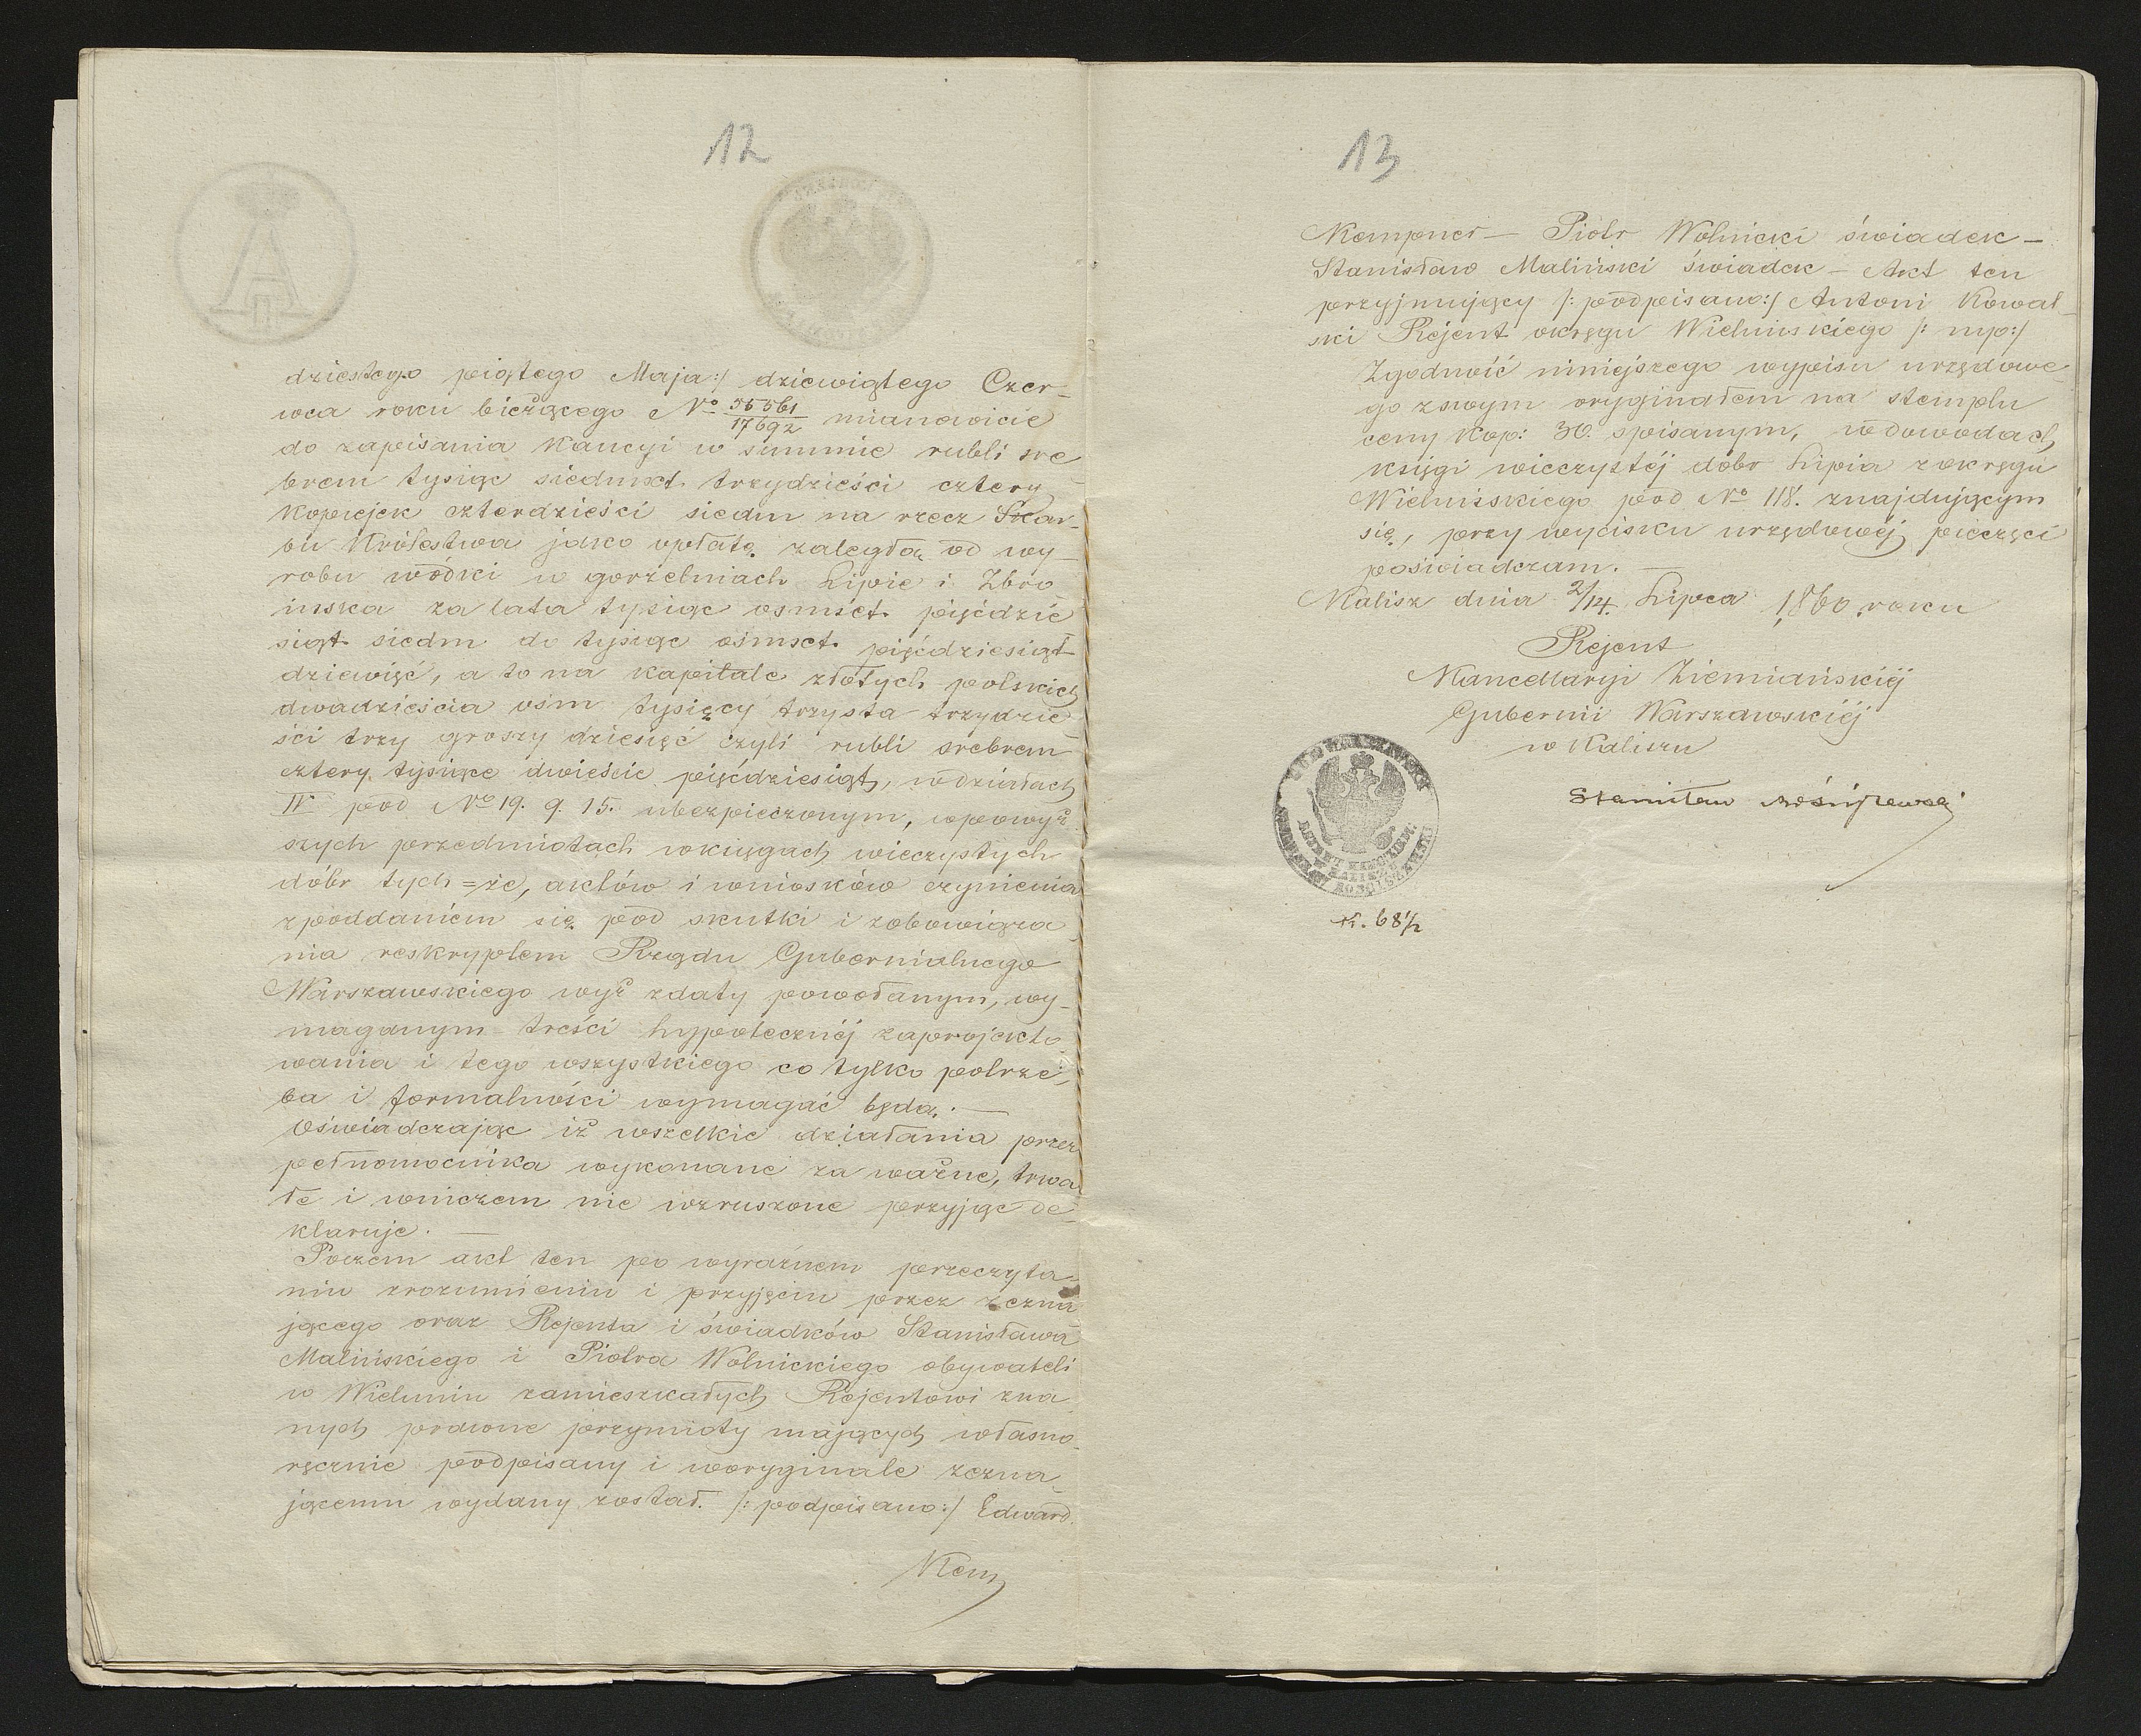 12
dziestego piątego Maja:/ dziewiątego Czer-
wca roku bieżącego No 55561/17692 mianowicie
do zapisania Kaucyi w summie rubli sre
brem tysiąc siedmset trzydzieści cztery
Kopiejek czterdzieści siedm na rzecz Skar-
bu Królestwa jako opłatę zaległą od wy-
robu wódki w gorzelniach Lipie i Zbro
inska za lata tysiąc ośmset pięćdzie
siąt siedm do tysiąc ośmset pięćdziesiąt
dziewięć, a to na kapitale złotych polskich
dwadzieścia ośm tysięcy trzysta trzydzie
ści trzy groszy dziesięć czyli rubli srebrem
cztery tysiące dwieście pięćdziesiąt, w działach
IV pod No 19. 9. 15. ubezpieczonym, w powyż
szych przedmiotach w księgach wieczystych
dóbr tych=że, aktów i wniosków czynienia
z poddaniem się pod skutki i zobowiąza
nia reskryptem Rządu Gubernialnego
Warszawskiego wyż z daty powołanym, wy-
maganym treści hypotecznéj zaprojekto
wania i tego wszystkiego co tylko potrze
ba i formalności wymagać będą. —
Oświadczając iż wszelkie działania przez
pełnomocnika wykonane za ważne, trwa
łe i w niczem nie wzruszone przyjąć de-
klaruje. —
Poczem akt ten po wyraźnem przeczyta-
niu zrozumieniu i przyjęciu przez zezna
jącego oraz Rejenta i świadków Stanisława
Malińskiego i Piotra Wolnickiego obywateli
w Wieluniu zamieszkałych Rejentowi zna
nych prawne przymioty mających własno-
ręcznie podpisany i w oryginale zezna
jącemu wydany został. /: podpisano:/ Edward
Kem
13
Kempner — Piotr Wolnicki świadek —
Stanisław Maliński świadek — Akt ten
przyjmujący /: podpisano:/ Antoni Kowal-
ski Rejent okręgu Wieluńskiego /: mp:/
Zgodność niniejszego wypisu urzędowe-
go z swym oryginałem na stemplu
ceny Kop: 30. spisanym, w dowodach
księgi wieczystéj dóbr Lipia z okręgu
Wieluńskiego pod No 118. znajdującym
się, przy wycisku urzędowéj pieczęci
poświadczam. —
Kalisz dnia 2/14. Lipca 1860 roku
Rejent
Kancellaryi Ziemiańskiéj
Gubernii Warszawskiéj
w Kaliszu
Stanisław
K. 68 1/2